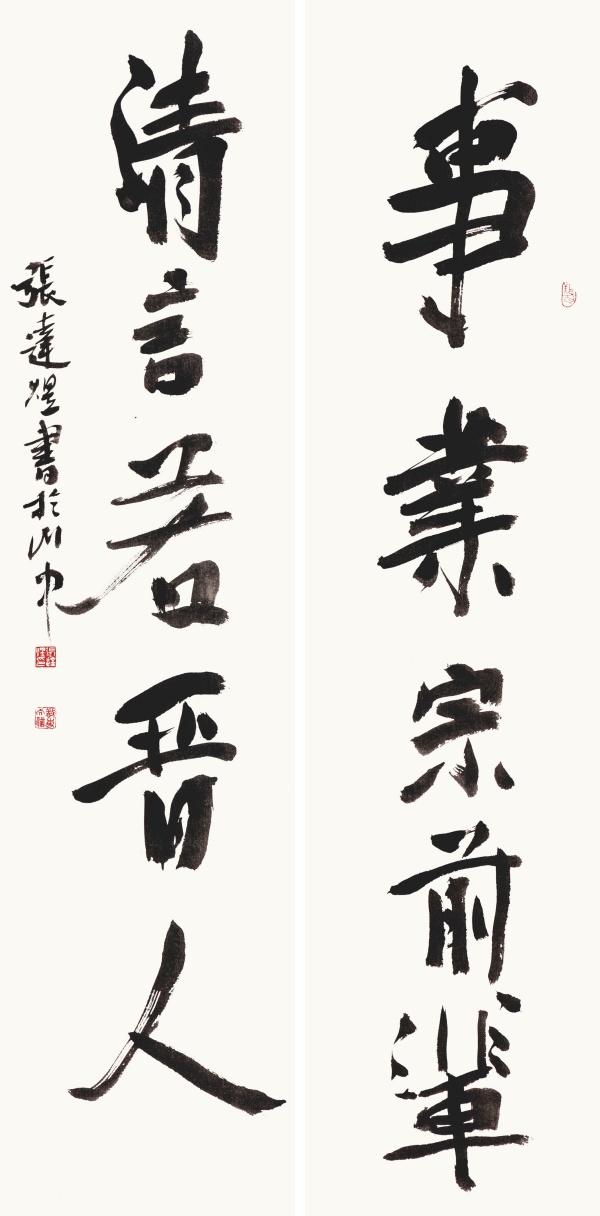 事業宗前輩
清言若晋人
張達煜書於山中